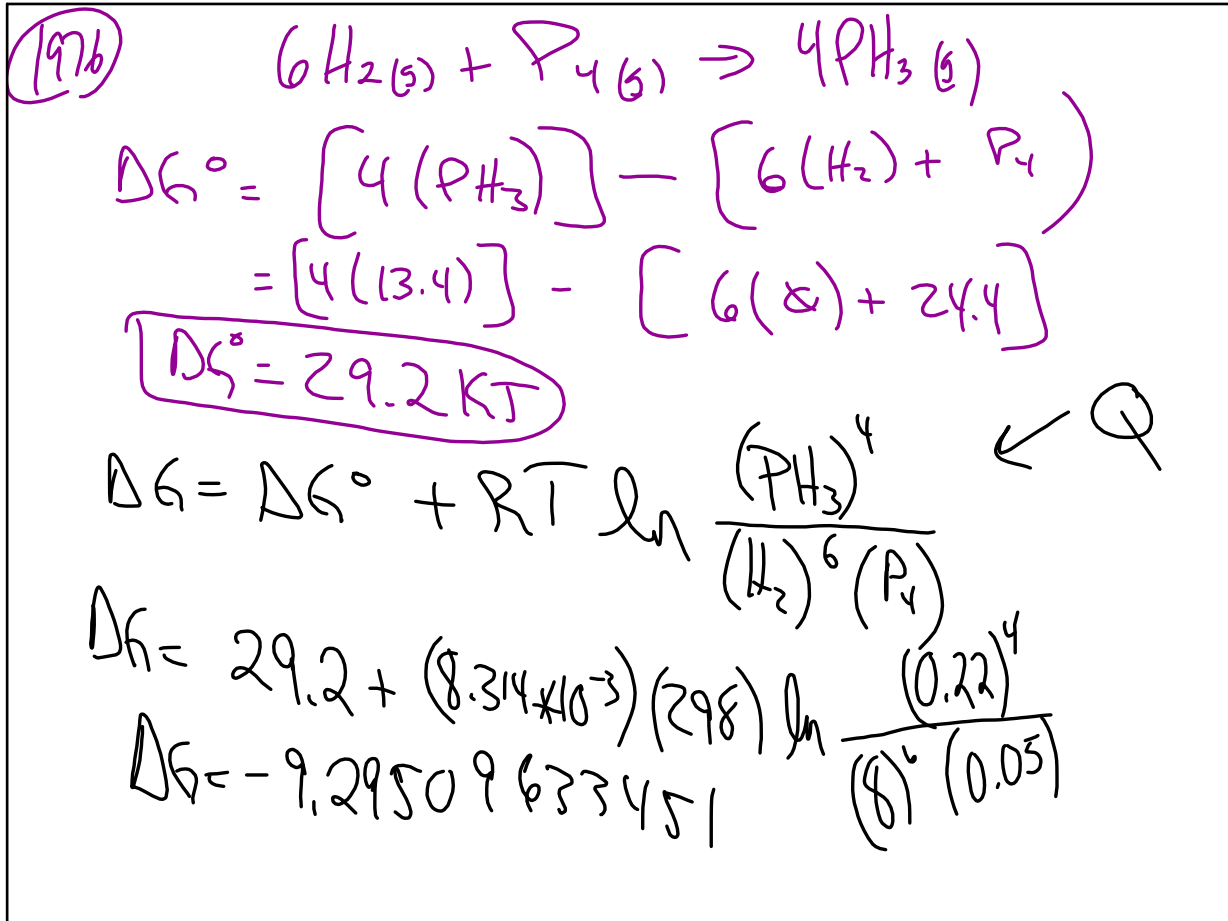 197b 6H₂(g) + P₄(g) → 4PH₃(g)
ΔG° = [4(PH₃)] − [6(H₂) + P₄)
= [4(13.4)] - [6(0) + 24.4]
ΔG° = 29.2 KJ
ΔG = ΔG° + RT ln (PH₃)⁴ / (H₂)⁶(P₄) ← Q
ΔG = 29.2 + (8.314×10⁻³)(298) ln (0.22)⁴ / (8)⁶(0.05)
ΔG = -9.295096333451